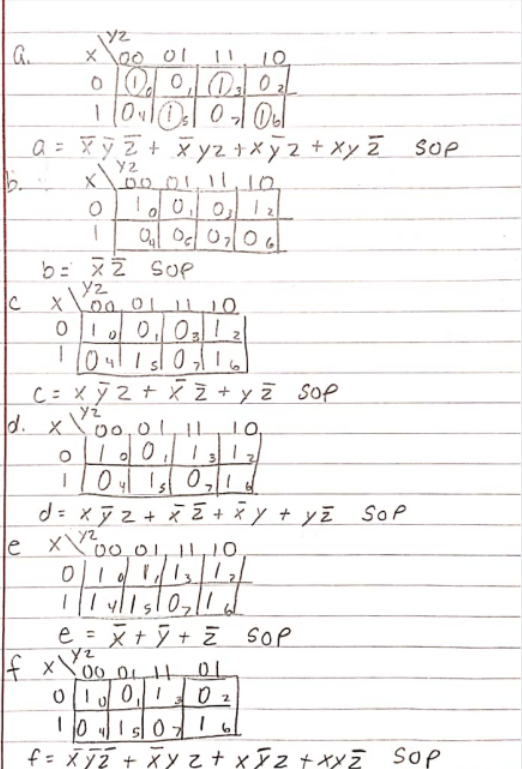 a. x\yz 00 01 11 10
0 1₀ 0₁ 1₃ 0₂
1 0₄ 1₅ 0₇ 1₆
a = x̅ y̅ z̅ + x̅ y z + x y̅ z + x y z̅ SOP
b. x\yz 00 01 11 10
0 1₀ 0₁ 0₃ 1₂
1 0₄ 0₅ 0₇ 0₆
b = x̅ z̅ SOP
c x\yz 00 01 11 10
0 1₀ 0₁ 0₃ 1₂
1 0₄ 1₅ 0₇ 1₆
c = x y̅ z + x̅ z̅ + y z̅ SOP
d. x\yz 00 01 11 10
0 1₀ 0₁ 1₃ 1₂
1 0₄ 1₅ 0₇ 1₆
d = x y̅ z + x̅ z̅ + x̅ y + y z̅ SOP
e x\yz 00 01 11 10
0 1₀ 1₁ 1₃ 1₂
1 1₄ 1₅ 0₇ 1₆
e = x̅ + y̅ + z̅ SOP
f x\yz 00 01 11 01
0 1₀ 0₁ 1₃ 0₂
1 0₄ 1₅ 0₇ 1₆
f = x̅ y̅ z̅ + x̅ y z + x y̅ z + x x z̅ SOP